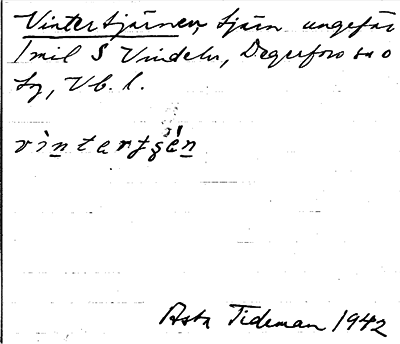 Vintertjärnen, tjärn ungefär
1 mil S Vindeln, Degerfors sn o
lg, Vb. l.
vìntertʂén
Asta Tideman 1942